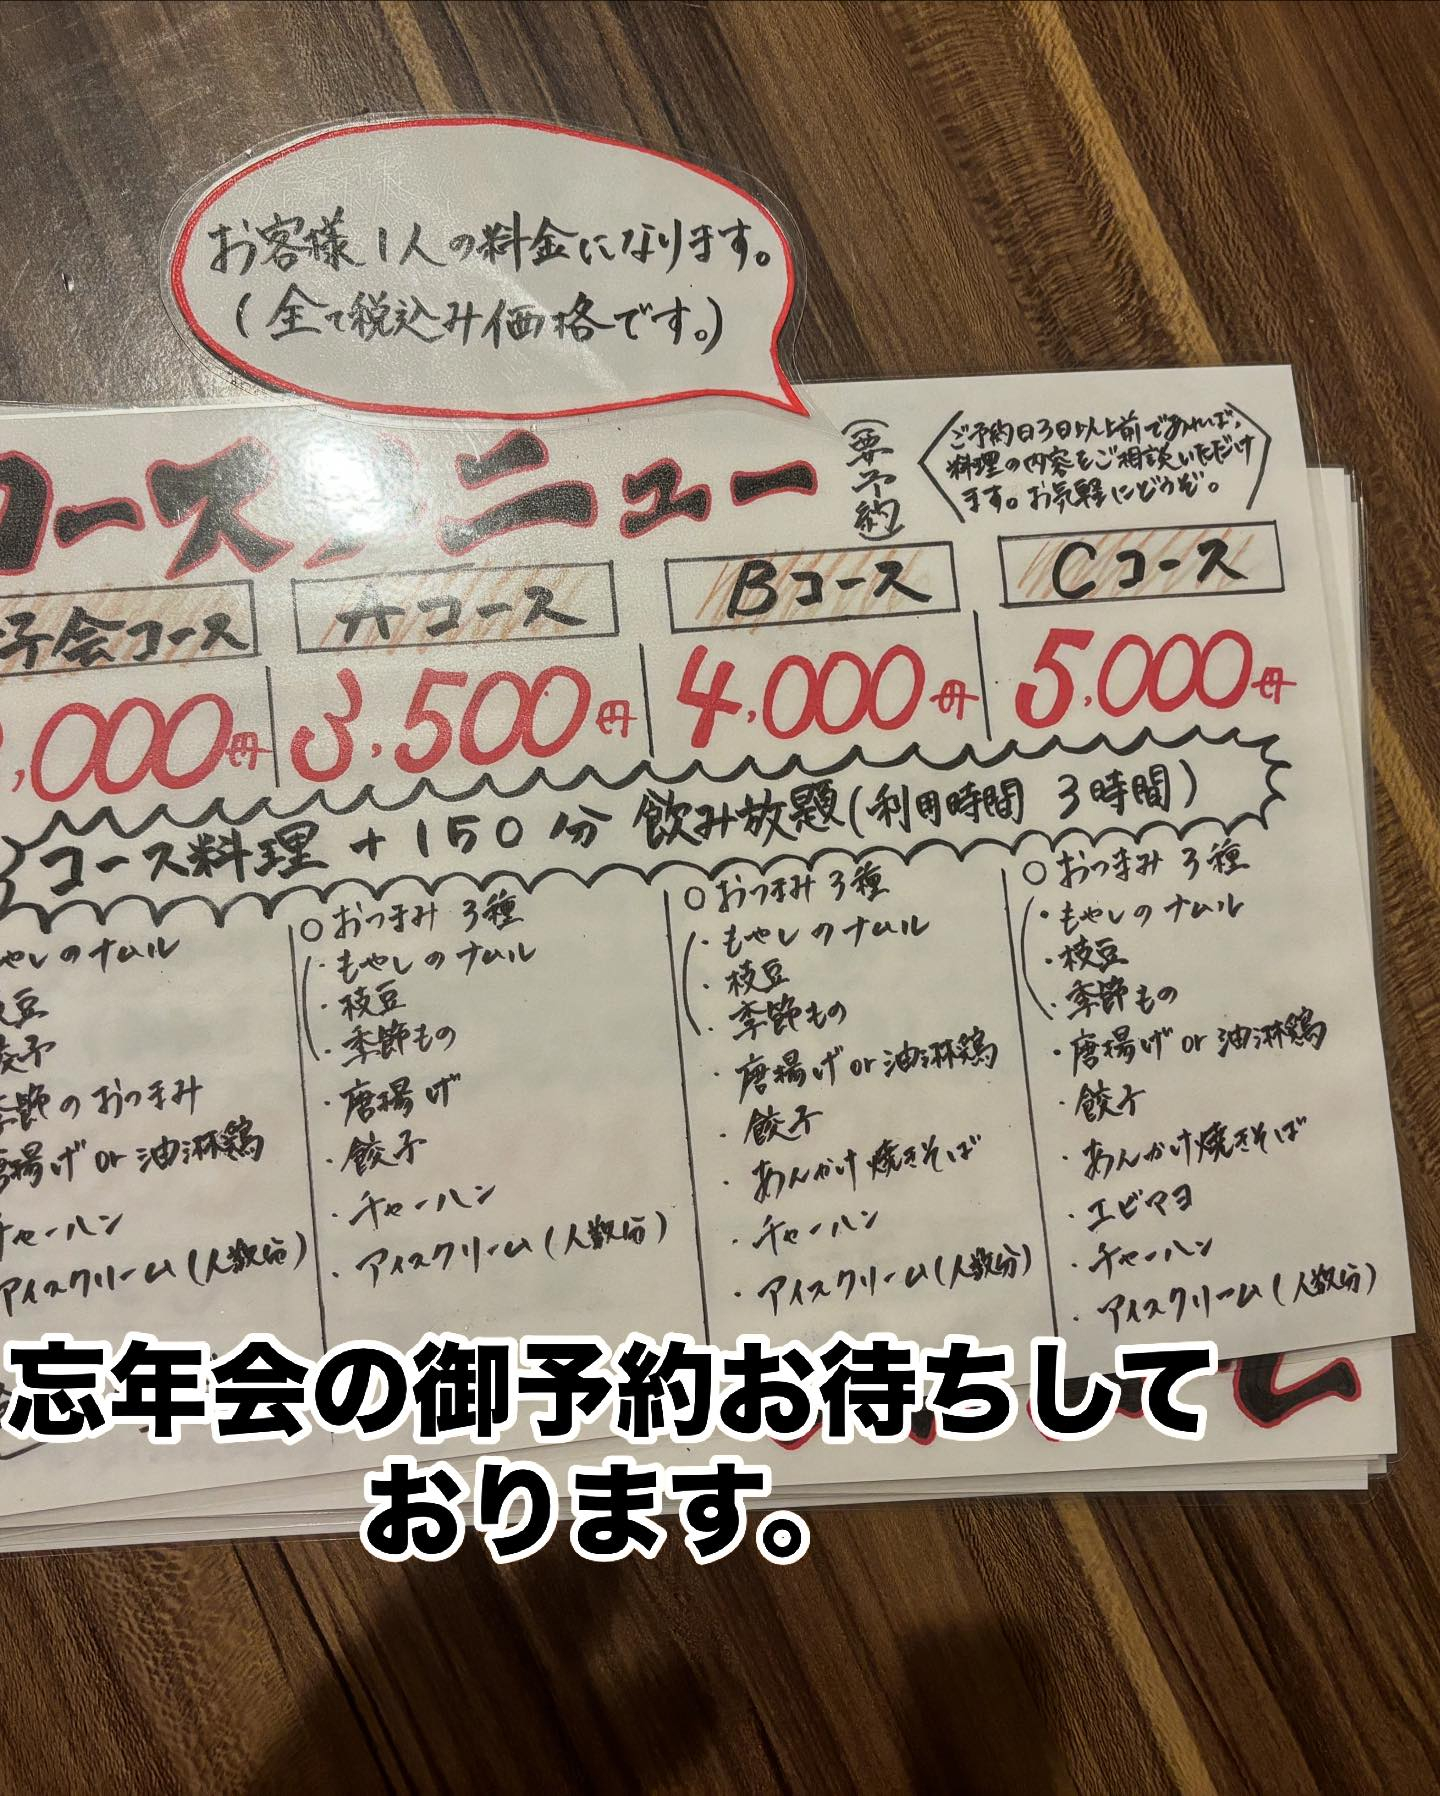 お客様1人の料金になります。
(全て税込み価格です。)
コースメニュー
(要予約)
ご予約日3日以上前であれば、
料理の内容をご相談いただけ
ます。お気軽にどうぞ。
子会コース
Aコース
Bコース
Cコース
,000円
3,500円
4,000円
5,000円
コース料理+150分 飲み放題(利用時間 3時間)
やしのナムル
豆
餃子
季節のおつまみ
唐揚げor油淋鶏
チャーハン
アイスクリーム(人数分)
○おつまみ 3種
・もやしのナムル
・枝豆
・季節もの
・唐揚げ
・餃子
・チャーハン
・アイスクリーム(人数分)
○おつまみ 3種
・もやしのナムル
・枝豆
・季節もの
・唐揚げor油淋鶏
・餃子
・あんかけ焼きそば
・チャーハン
・アイスクリーム(人数分)
○おつまみ 3種
・もやしのナムル
・枝豆
・季節もの
・唐揚げor油淋鶏
・餃子
・あんかけ焼きそば
・エビマヨ
・チャーハン
・アイスクリーム(人数分)
忘年会の御予約お待ちして
おります。